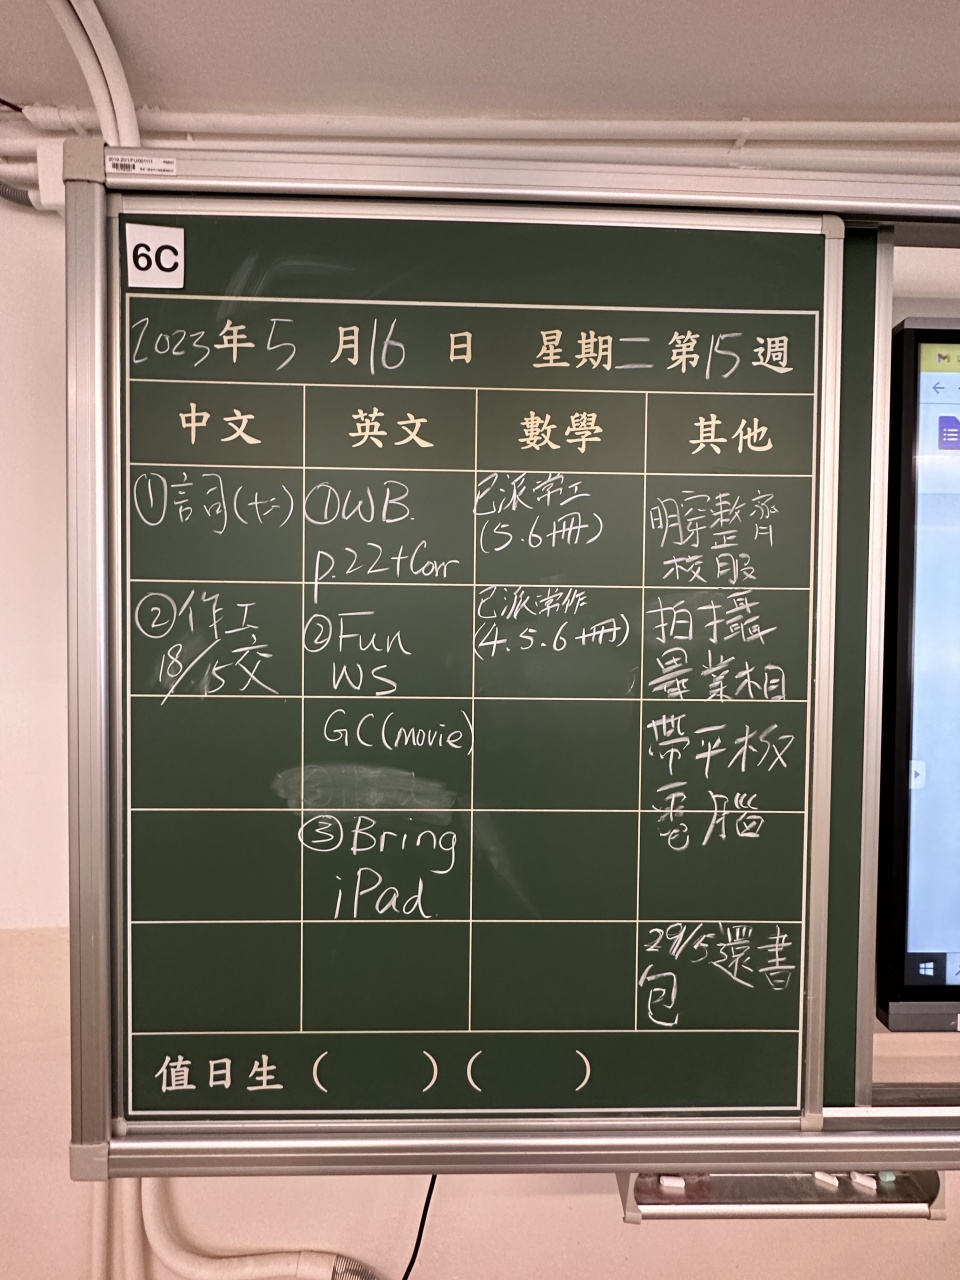 6C
2023年5月16日 星期二第15週
中文 英文 數學 其他
①詞(十二)
①WB.
p.22+Corr
已派常工
(5.6冊)
明穿整齊
校服
②作工
18/5交
②Fun
WS
已派常作
(4.5.6冊)
拍攝
畢業相
GC(movie)
帶平板
電腦
③Bring
iPad.
29/5還書
包
值日生（ ）（ ）